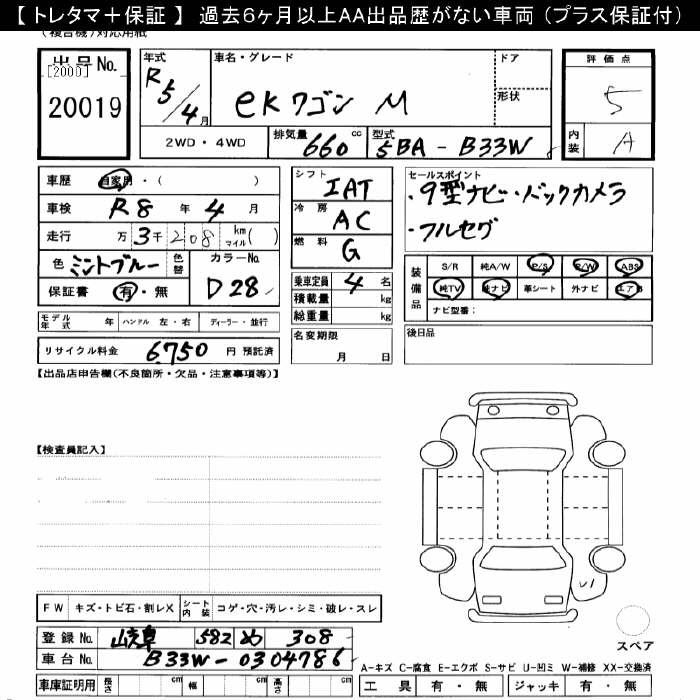 【 トレタマ＋保証 】 過去6ヶ月以上AA出品歴がない車両 (プラス保証付)
(複合機)対応用紙
出品No. [2000] 20019
年式 R5/4月
車名・グレード eKワゴン M
ドア
形状
評価点 5
内装 A
2WD・4WD
排気量 660 cc
型式 5BA-B33W
車歴 自家用・( )
車検 R8 年 4 月
走行 万 3千 208 km マイル ( )
色 ミントブルー 色替
カラーNo. D28
保証書 有・無
シフト IAT
冷房 AC
燃料 G
乗車定員 4 名
積載量 kg
総重量 kg
セールスポイント
・9型ナビ・バックカメラ
・フルセグ
装備品 S/R 純A/W P/S P/W ABS
純TV 純ナビ 革シート 外ナビ エアB
ナビ型番：
モデル年式 年 ハンドル 左・右 ディーラー・並行
リサイクル料金 6,750 円 預託済
名変期限 月 日
後日品
【出品店申告欄(不良箇所・欠品・注意事項等)】
【検査員記入】
U1
FW キズ・トビ石・割レX シート内装 コゲ・穴・汚レ・シミ・破レ・スレ
スペア
登録No. 岐阜 582 め 308
車台No. B33W-0304786
A-キズ C-腐食 E-エクボ S-サビ U-凹ミ W-補修 XX-交換済
車庫証明用 長さ cm 幅 cm 高さ cm
工具 有・無 ジャッキ 有・無